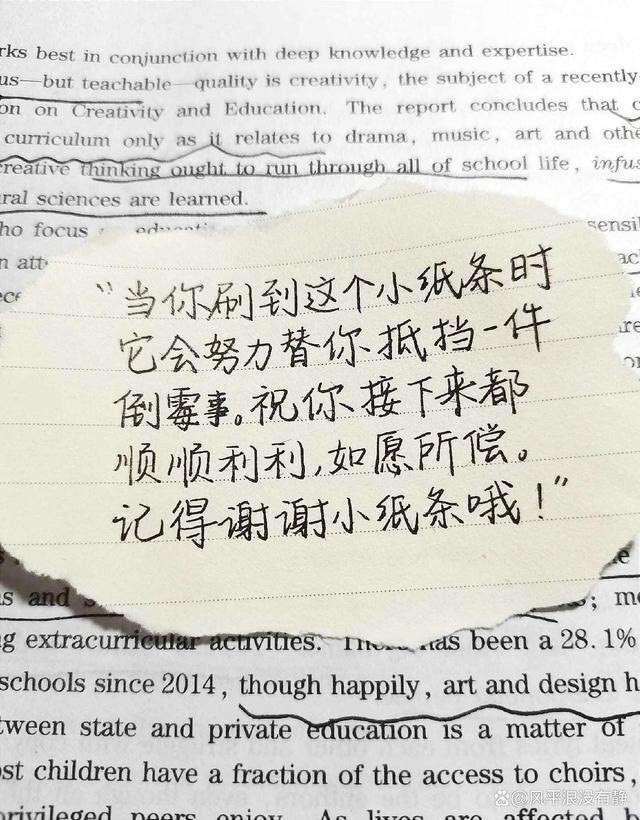 rks best in conjunction with deep knowledge and expertise.
us—but teachable—quality is creativity, the subject of a recently
on on Creativity and Education. The report concludes that
curriculum only as it relates to drama, music, art and othe
creative thinking ought to run through all of school life, infus
ral sciences are learned.
ho focus
sensi
n att
“当你刷到这个小纸条时
它会努力替你抵挡一件
倒霉事。祝你接下来都
顺顺利利,如愿所偿。
记得谢谢小纸条哦！”
s and
; m
g extracurricular activities.
has been a 28.1%
schools since 2014, though happily, art and design h
tween state and private education is a matter of
st children have a fraction of the access to choirs,
privileged peers enjoy. As lives are affected
@风平浪没有静